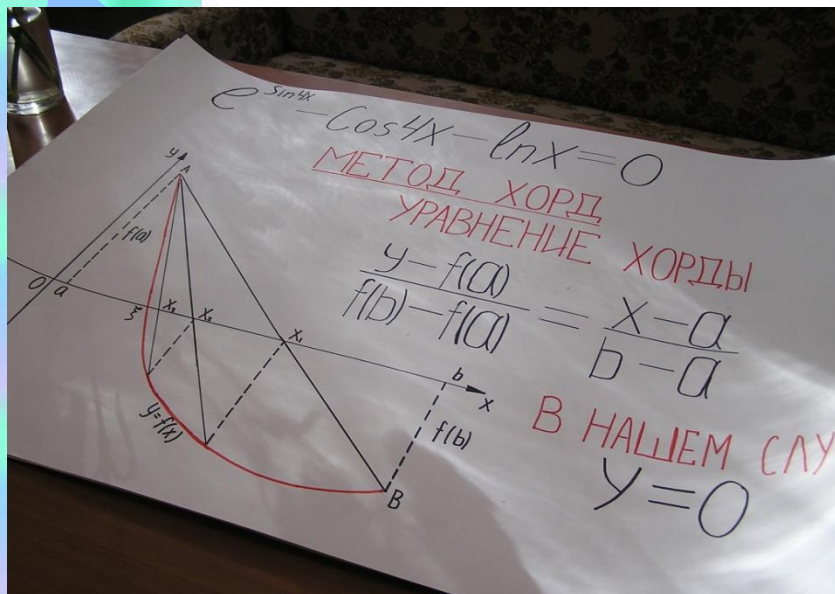 e^sin4x - cos4x - lnx = 0
МЕТОД ХОРД
УРАВНЕНИЕ ХОРДЫ
y - f(a) / f(b) - f(a) = x - a / b - a
В НАШЕМ СЛУ
y = 0
y
A
f(a)
O
a
ξ
x₃
x₂
x₁
b
x
y=f(x)
f(b)
B